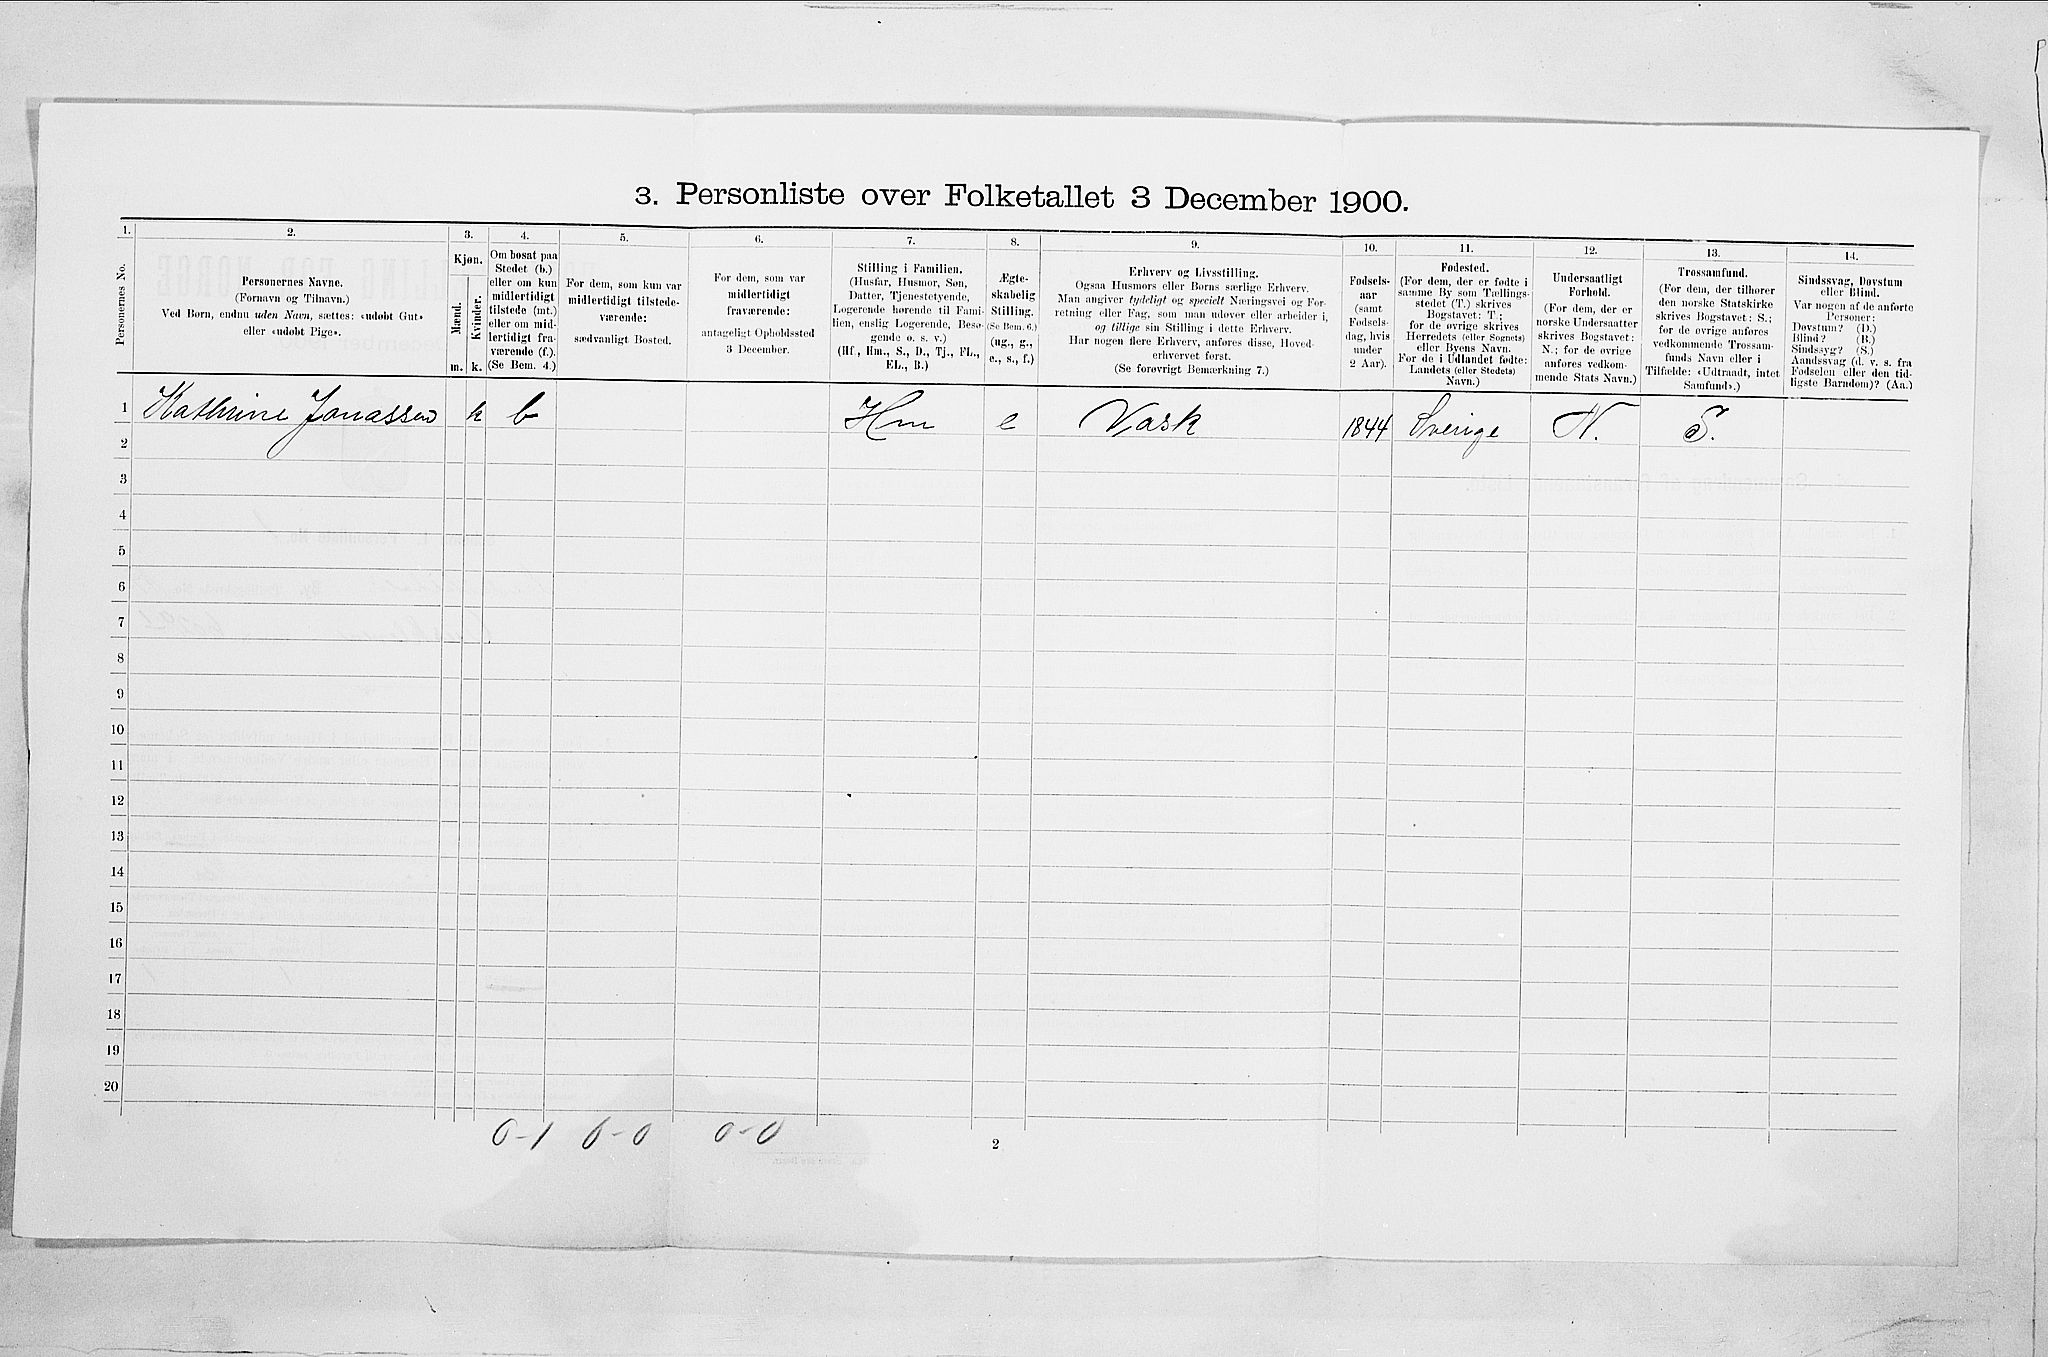 3. Personliste over Folketallet 3 December 1900.
1. 2. 3. 4. 5. 6. 7. 8. 9. 10. 11. 12. 13. 14.
Personernes No.
Personernes Navne.
(Fornavn og Tilnavn.)
Ved Børn, endnu uden Navn, sættes: «udøbt Gut»
eller «udøbt Pige».
Kjøn.
Mænd.
Kvinder.
m. k.
Om bosat paa
Stedet (b.)
eller om kun
midlertidigt
tilstede (mt.)
eller om mid-
lertidigt fra-
værende (f.).
(Se Bem. 4.)
For dem, som kun var
midlertidigt tilstede-
værende:
sædvanligt Bosted.
For dem, som var
midlertidigt
fraværende:
antageligt Opholdssted
3 December.
Stilling i Familien.
(Husfar, Husmor, Søn,
Datter, Tjenestetyende,
Logerende hørende til Fami-
lien, enslig Logerende, Besø-
gende o. s. v.)
(Hf., Hm., S., D., Tj., FL.,
EL., B.)
Ægte-
skabelig
Stilling.
(Se Bem. 6.)
(ug., g.,
e., s., f.)
Erhverv og Livsstilling.
Ogsaa Husmors eller Børns særlige Erhverv.
Man angiver tydeligt og specielt Næringsvei og For-
retning eller Fag, som man udøver eller arbeider i,
og tillige sin Stilling i dette Erhverv.
Har nogen flere Erhverv, anføres disse, Hoved-
erhvervet først.
(Se forøvrigt Bemærkning 7.)
Fødsels-
aar
(samt
Fødsels-
dag, hvis
under
2 Aar).
Fødested.
(For dem, der er fødte i
samme By som Tællings-
stedet (T.) skrives
Bogstavet: T.;
for de øvrige skrives
Herredets (eller Sognets)
eller Byens Navn.
For de i Udlandet fødte:
Landets (eller Stedets)
Navn.)
Undersaatligt
Forhold.
(For dem, der er
norske Undersaatter
skrives Bogstavet:
N.; for de øvrige
anføres vedkom-
mende Stats Navn.)
Trossamfund.
(For dem, der tilhører
den norske Statskirke
skrives Bogstavet: S.;
for de øvrige anføres
vedkommende Trossam-
funds Navn eller i
Tilfælde: «Udtraadt, intet
Samfund».)
Sindssvag, Døvstum
eller Blind.
Var nogen af de anførte
Personer:
Døvstum? (D.)
Blind? (B.)
Sindssyg? (S.)
Aandssvag (d. v. s. fra
Fødselen eller den tid-
ligste Barndom)? (Aa.)
1 Kathrine Jonassen k b Hm e Vask 1844 Sverige N. S.
2
3
4
5
6
7
8
9
10
11
12
13
14
15
16
17
18
19
20
0-1 0-0 0-0
2